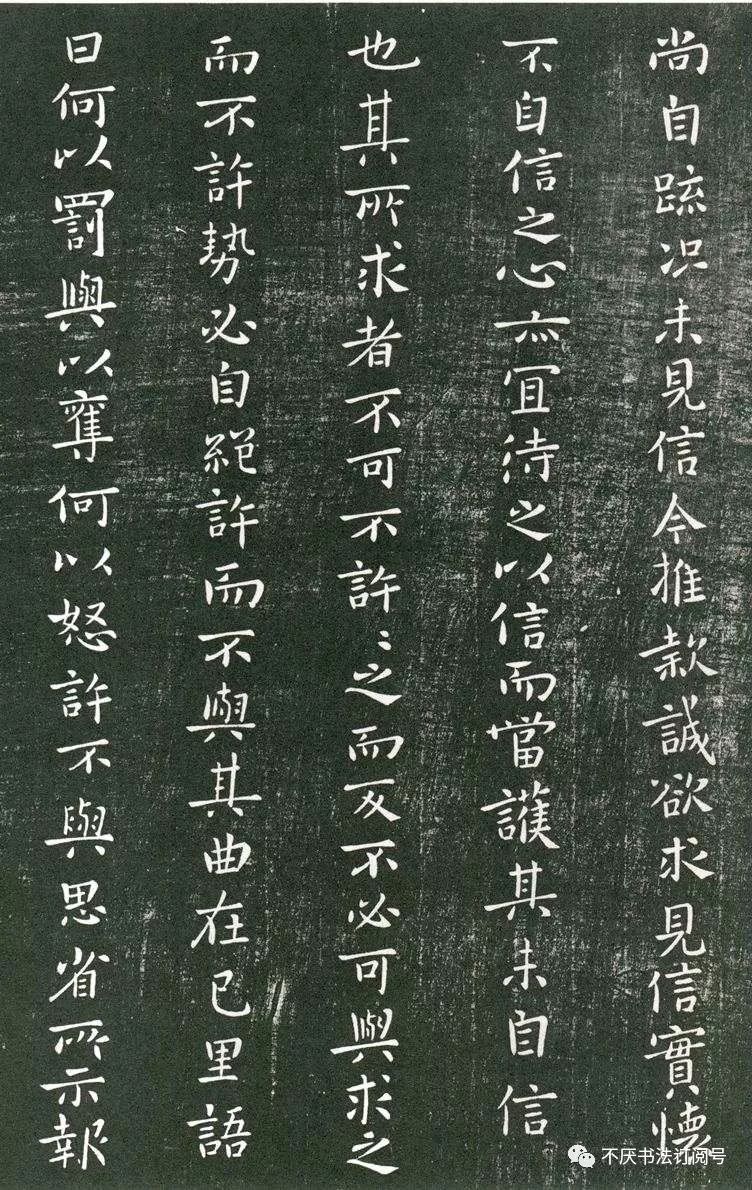 尚自疏況未見信今推款誠欲求見信實懷
不自信之心亦宜待之以信而當護其未自信
也其所求者不可不許〻之而反不必可與求之
而不許勢必自絕許而不與其曲在己里語
曰何以罰與以奪何以怒許不與思省所示報
不厌书法订阅号